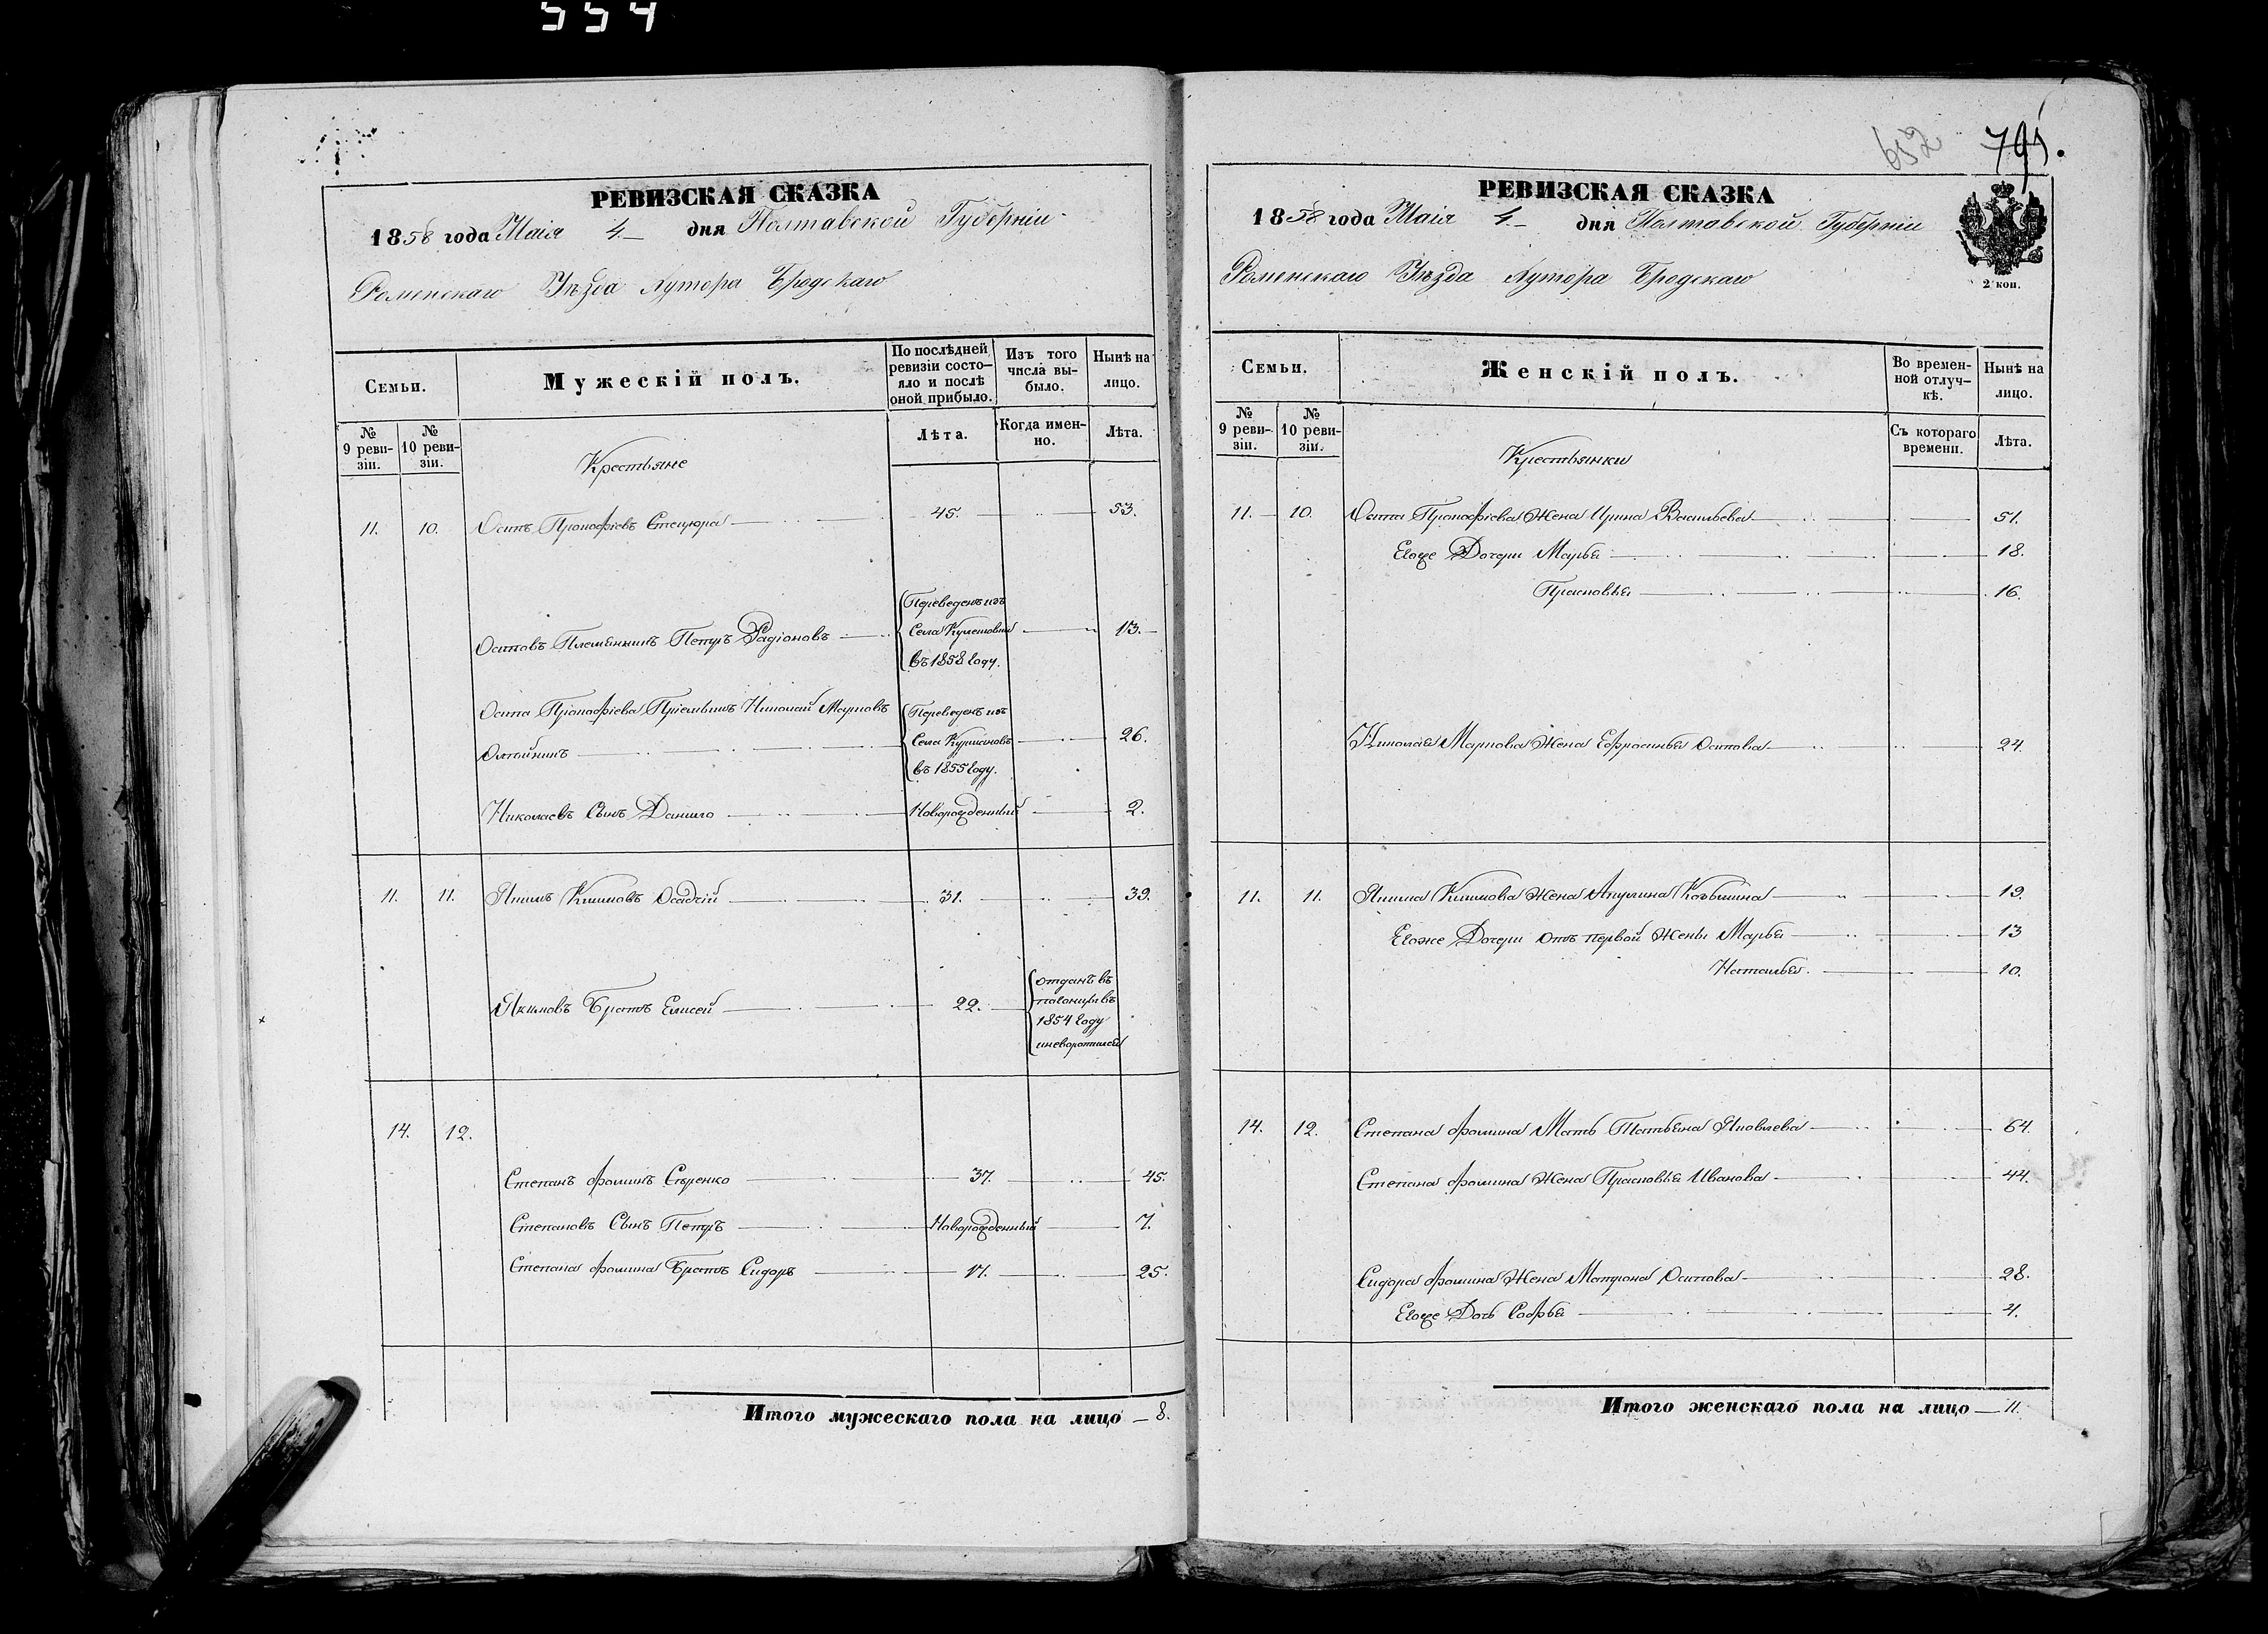 554
РЕВИЗСКАЯ СКАЗКА
1858 года Маія 4 дня Полтавской Губерніи
Роменскаго Уѣзда Хутора Бродскаго
Семьи.
Мужескій полъ.
По послѣдней ревизіи состо-яло и послѣ оной прибыло.
Изъ того числа вы-было.
Нынѣ на лицо.
№ 9 реви-зіи.
№ 10 реви-зіи.
Крестьяне
Лѣта.
Когда имен-но.
Лѣта.
11. 10. Осипъ Прокофіевъ Стецюра 45. 53.
Осиповъ Племянникъ Петръ Радіоновъ
Переведенъ изъ
Села
въ 1858 Году.
13.
Осипа Прокофіева Пріемышъ Николай Марковъ
Олейникъ
Переведенъ изъ
Села
въ 1855 Году.
26.
Николаевъ Сынъ Данило Новорожденный 2.
11. 11. Якимъ Климовъ Осадчій 31. 39.
Якимовъ Братъ Елисей 22.
отданъ въ
погонцы въ
1854 Году
и неворотился
14. 12.
Степанъ Фоминъ Сѣренко 37. 45.
Степановъ Сынъ Петръ Новорожденный 7.
Степана Фомина Братъ Сидоръ 17. 25.
Итого мужескаго пола на лицо 8.
652
РЕВИЗСКАЯ СКАЗКА
1858 года Маія 4 дня Полтавской Губерніи
Роменскаго Уѣзда Хутора Бродскаго
2 коп.
Семьи.
Женскій полъ.
Во времен-ной отлуч-кѣ.
Нынѣ на лицо.
№ 9 реви-зіи.
№ 10 реви-зіи.
Крестьянки
Съ котораго времени.
Лѣта.
11. 10. Осипа Прокофіева Жена Ирина Васильева 51.
Егоже Дочери Марья 18.
Прасковья 16.
Николая Маркова Жена Ефросинья Осипова 24.
11. 11. Якима Климова Жена Акулина Козьмина 19.
Егоже Дочери отъ первой Жены Марья 13
Наталья. 10.
14. 12. Степана Фомина Мать Татьяна Яковлева 64.
Степана Фомина Жена Прасковья Иванова 44.
Сидора Фомина Жена Матрона Осипова 28.
Егоже Дочь Софья 4.
Итого женскаго пола на лицо 11.